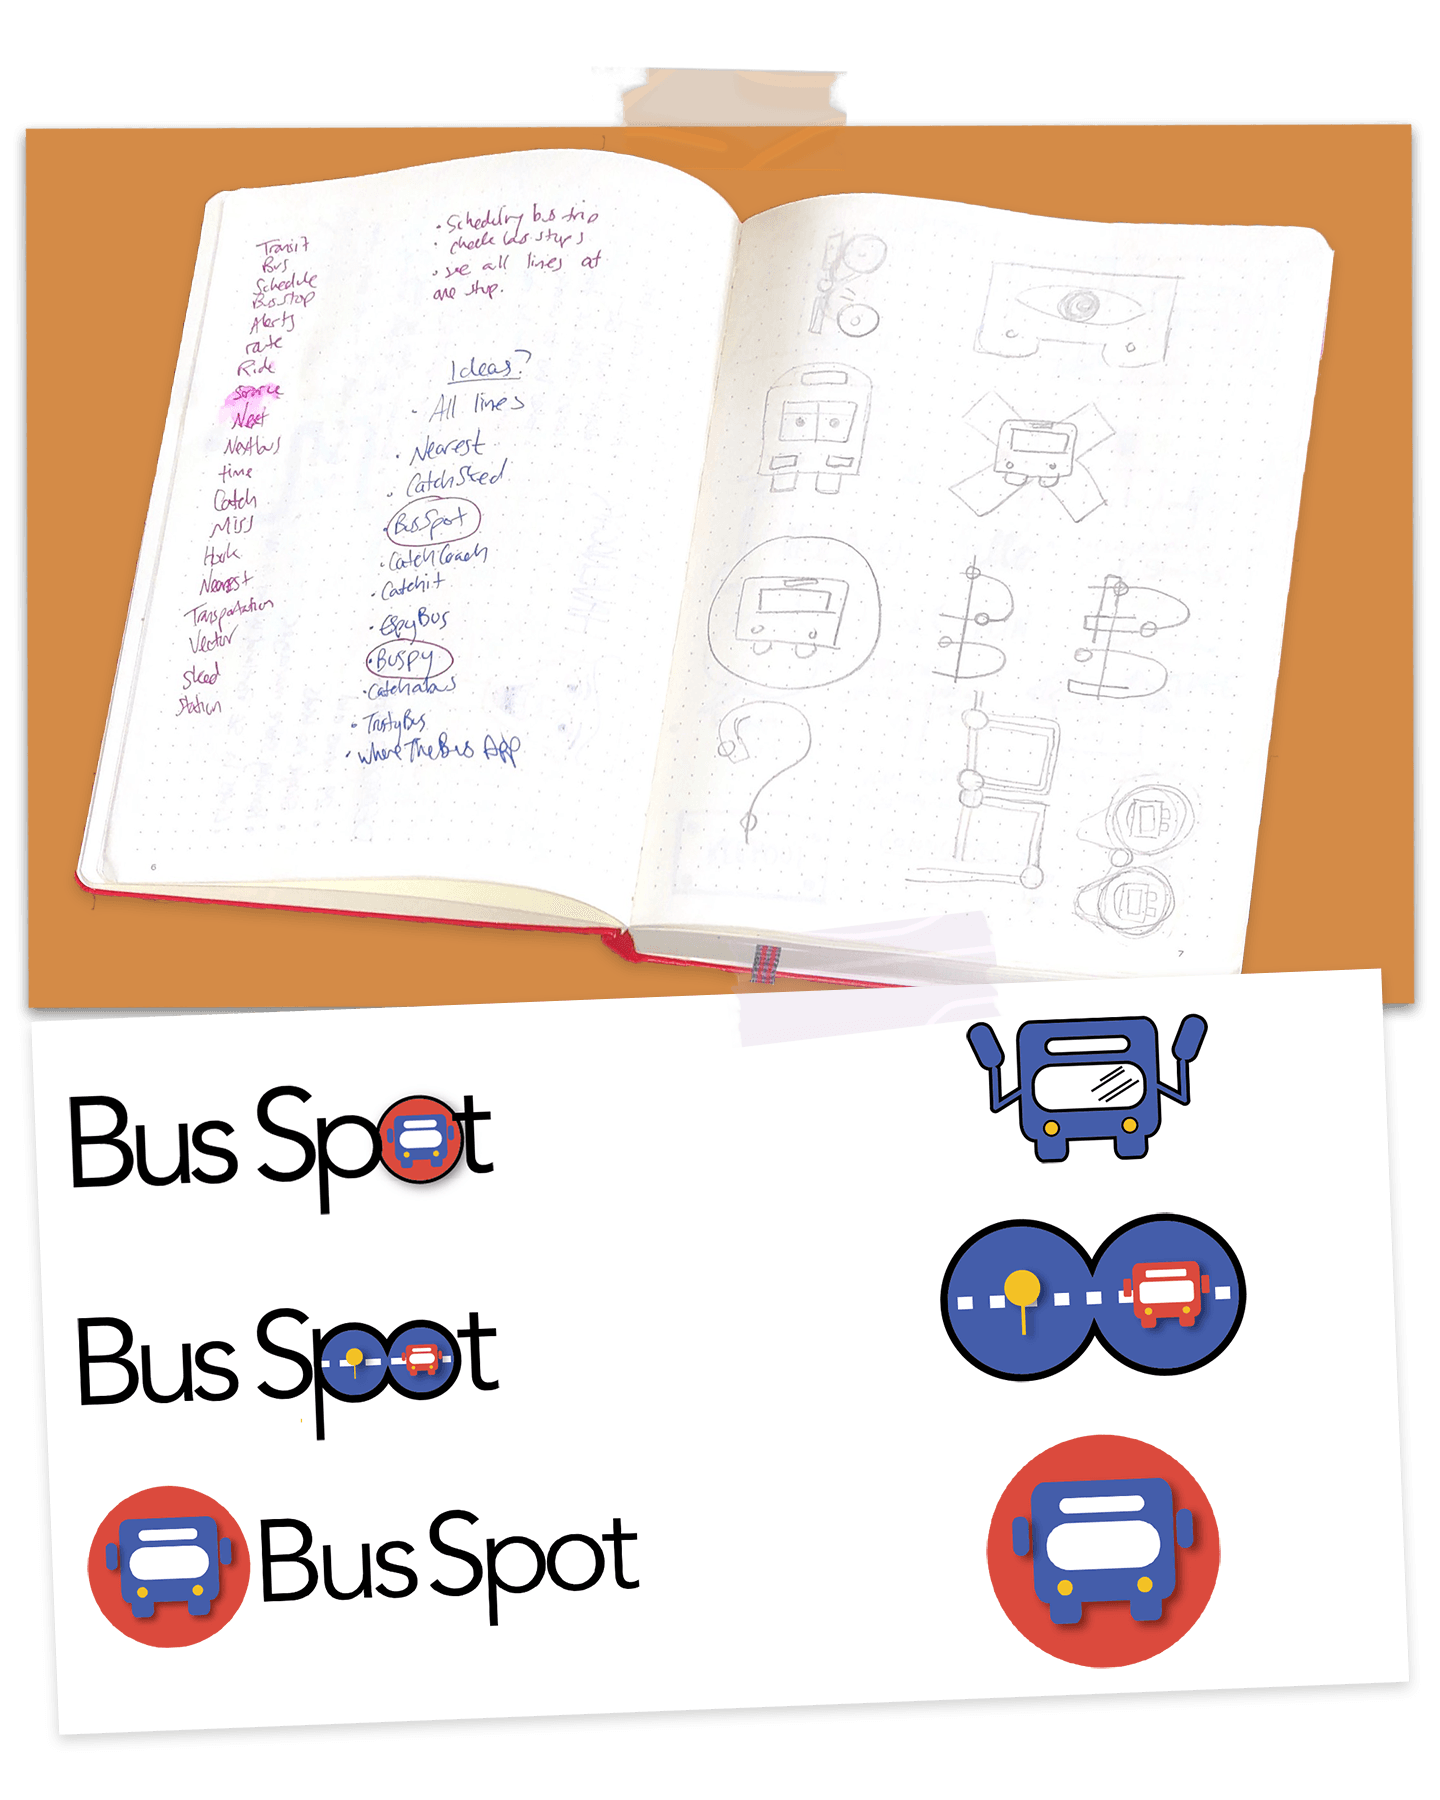 Transit
Bus
Schedule
Bus stop
Alerts
route
Ride
Next
Nextbus
time
Catch
Miss
Hook
Nearest
Transportation
Vector
Sked
Station
• Scheduling bus trip
• check bus stops
• see all lines at
one stop.
Ideas?
• All lines
• Nearest
• CatchSked
• BusSpot
• CatchCoach
• Catchit
• EspyBus
• Buspy
• Catchabus
• TrustyBus
• Where The Bus App
6
7
Bus Spot
Bus Spot
Bus Spot